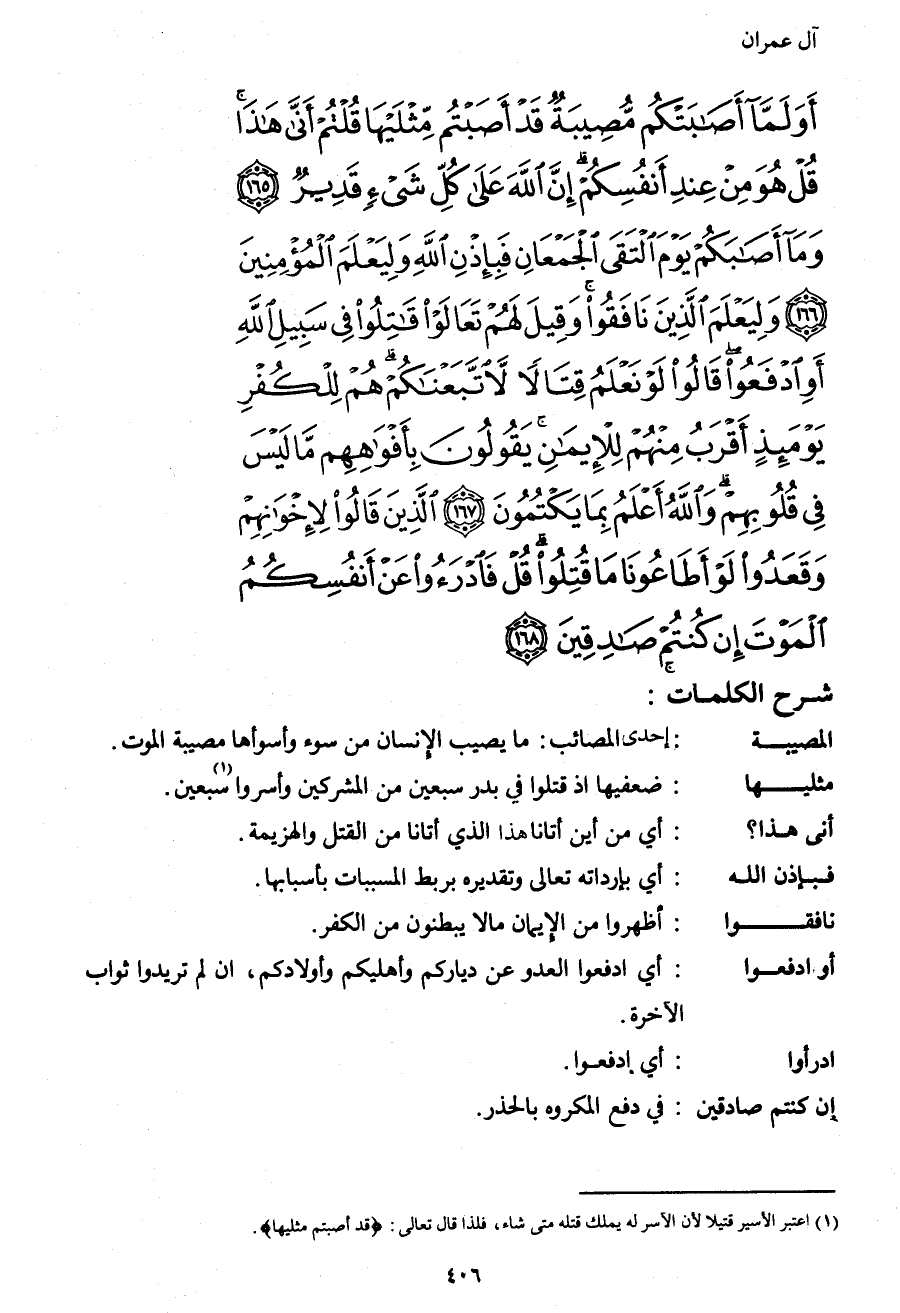 آل عمران
أَوَلَمَّآ أَصَٰبَتْكُم مُّصِيبَةٌ قَدْ أَصَبْتُم مِّثْلَيْهَا قُلْتُمْ أَنَّىٰ هَٰذَا ۖ
قُلْ هُوَ مِنْ عِندِ أَنفُسِكُمْ ۗ إِنَّ ٱللَّهَ عَلَىٰ كُلِّ شَىْءٍ قَدِيرٌ ﴿١٦٥﴾
وَمَآ أَصَٰبَكُمْ يَوْمَ ٱلْتَقَى ٱلْجَمْعَانِ فَبِإِذْنِ ٱللَّهِ وَلِيَعْلَمَ ٱلْمُؤْمِنِينَ
﴿١٦٦﴾ وَلِيَعْلَمَ ٱلَّذِينَ نَافَقُوا۟ ۚ وَقِيلَ لَهُمْ تَعَالَوْا۟ قَٰتِلُوا۟ فِى سَبِيلِ ٱللَّهِ
أَوِ ٱدْفَعُوا۟ ۖ قَالُوا۟ لَوْ نَعْلَمُ قِتَالًا لَّٱتَّبَعْنَٰكُمْ ۗ هُمْ لِلْكُفْرِ
يَوْمَئِذٍ أَقْرَبُ مِنْهُمْ لِلْإِيمَٰنِ ۚ يَقُولُونَ بِأَفْوَٰهِهِم مَّا لَيْسَ
فِى قُلُوبِهِمْ ۗ وَٱللَّهُ أَعْلَمُ بِمَا يَكْتُمُونَ ﴿١٦٧﴾ ٱلَّذِينَ قَالُوا۟ لِإِخْوَٰنِهِمْ
وَقَعَدُوا۟ لَوْ أَطَاعُونَا مَا قُتِلُوا۟ ۗ قُلْ فَٱدْرَءُوا۟ عَنْ أَنفُسِكُمُ
ٱلْمَوْتَ إِن كُنتُمْ صَٰدِقِينَ ﴿١٦٨﴾
شرح الكلمات :
المصيبة : إحدى المصائب : ما يصيب الإنسان من سوء وأسوأها مصيبة الموت .
مثليها : ضعفيها اذ قتلوا في بدر سبعين من المشركين وأسروا سبعين(١) .
أنى هذا؟ : أي من أين أتانا هذا الذي أتانا من القتل والهزيمة .
فبإذن الله : أي بإرداته تعالى وتقديره بربط المسببات بأسبابها .
نافقوا : أظهروا من الإيمان مالا يبطنون من الكفر .
أو ادفعوا : أي ادفعوا العدو عن دياركم وأهليكم وأولادكم ، ان لم تريدوا ثواب
الآخرة .
ادرأوا : أي إدفعوا .
إن كنتم صادقين : في دفع المكروه بالحذر .
(١) اعتبر الأسير قتيلا لأن الآسر له يملك قتله متى شاء ، فلذا قال تعالى : ﴿قد أصبتم مثليها﴾ .
٤٠٦